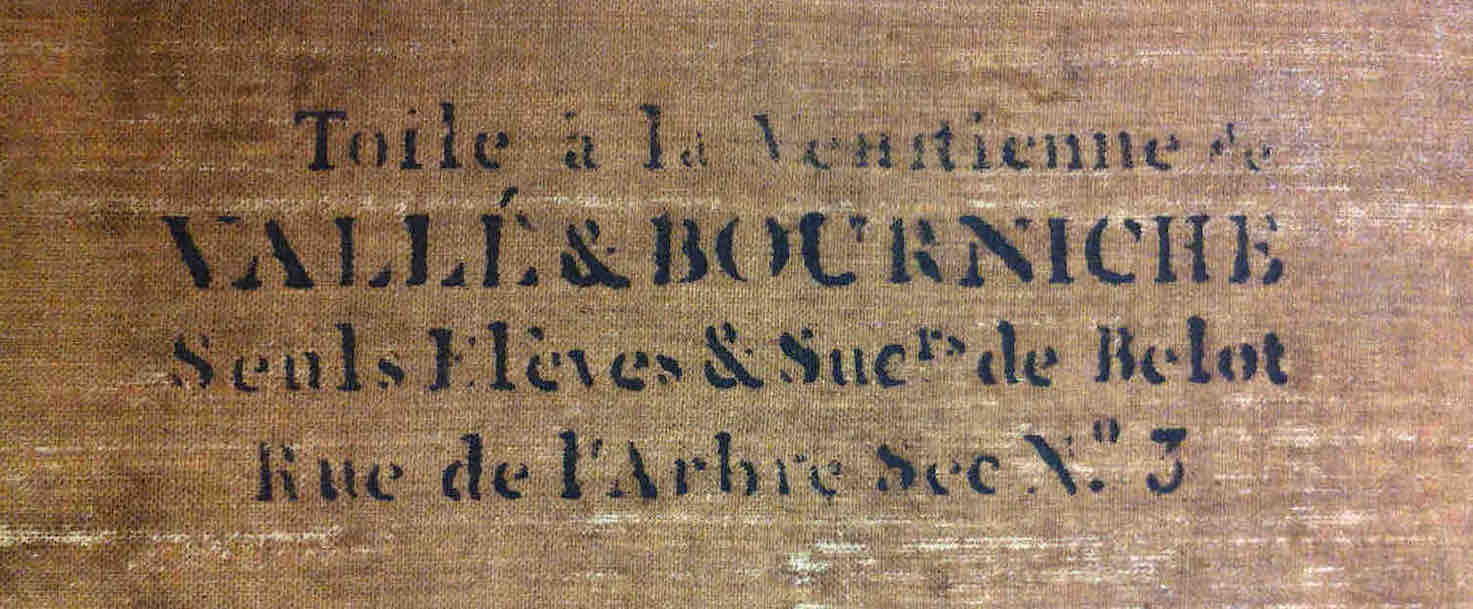 Toile à la Venitienne de
VALLÉ & BOURNICHE
Seuls Elèves & Sucrs de Belot
Rue de l'Arbre Sec No. 3